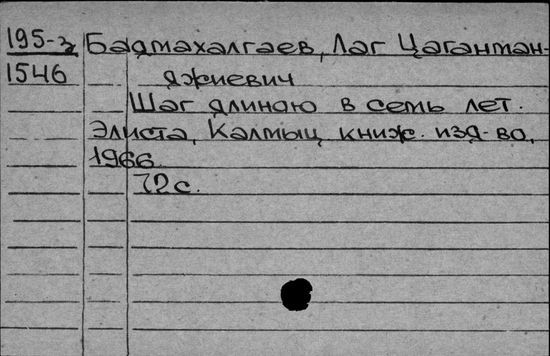 195-3 Бадмахалгаев, Лаг Цагантман-
1546 джиевич
Шаг длиною в семь лет.
Элиста, Калмыц. книж. изд-во,
1966.
72 с.